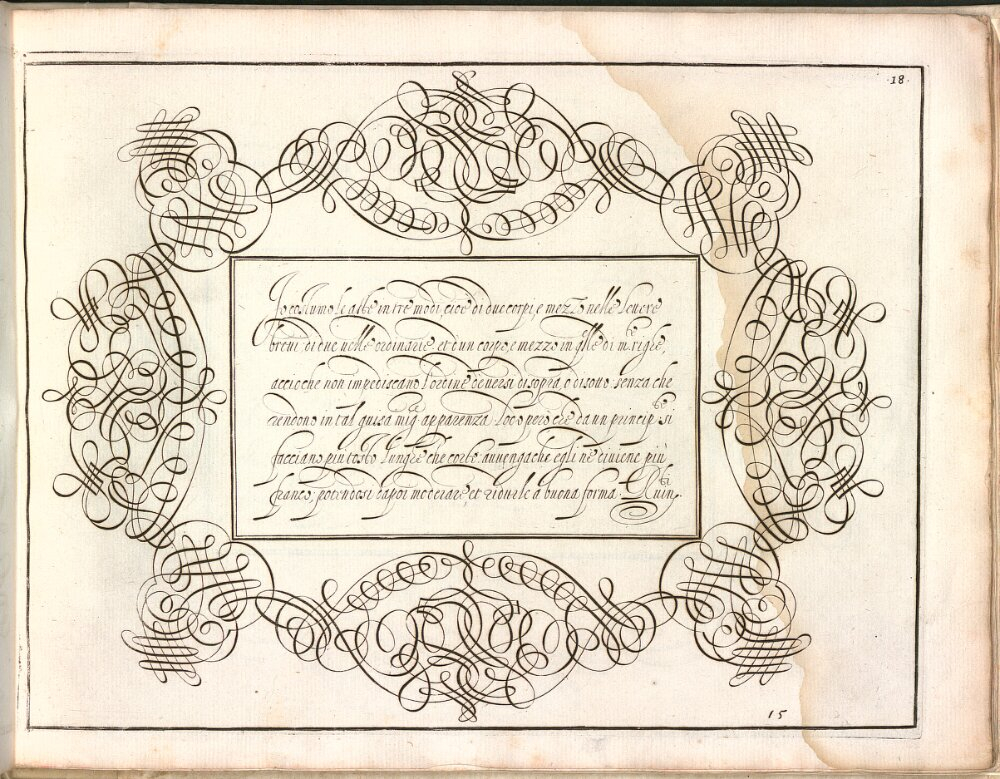 ·18·
Io costumo le aste in tre modi, cioè di due corpi, e mezzo nelle lettere
brevi, di due nelle ordinarie, et d'un corpo, e mezzo in q.lle di m. righe,
acciò che non impediscano l'ordine de versi di sopra, o di sotto, senza che
rendono in tal guisa mig. apparenza. Lodo però che da un princip.te si
facciano più tosto lunghe che corte, auuengache egli ne diuiene più
franco, potendosi dapoi moderare, et ridurle a buona forma.
15